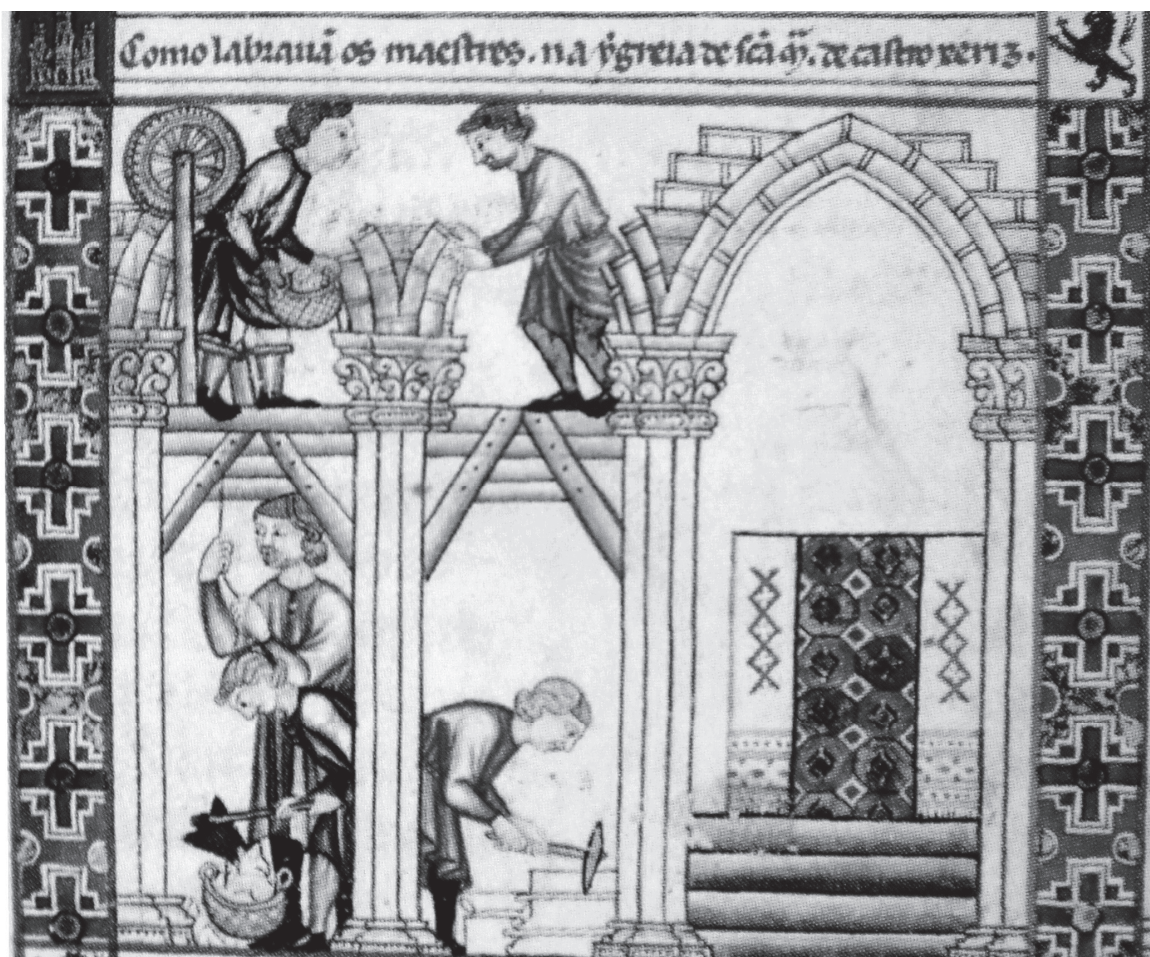 Como labrauã os maestres. na ygreia de scã m̃. de castro xeriz.